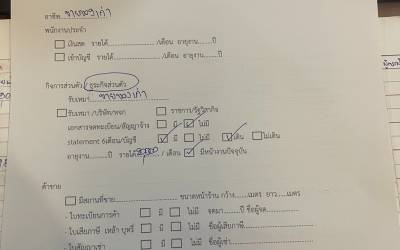 อาชีพ ขายของเก่า
พนักงานประจำ
เงินสด รายได้............../เดือน อายุงาน......ปี
เข้าบัญชี รายได้............../เดือน อายุงาน......ปี
กิจการส่วนตัว / ธุรกิจส่วนตัว
รับเหมา ขายของเก่า
รับเหมา /บริษัท/หจก ราชการ/รัฐวิสาหกิจ
เอกสารจดทะเบียน/สัญญาจ้าง มี ไม่มี
statement 6เดือน/บัญชี มี เดิน ไม่เดิน
อายุงาน........ปี รายได้ / เดือน มีหน้างานปัจจุบัน
ค้าขาย
มีสถานที่ขาย ขนาดหน้าร้าน กว้าง.......เมตร ยาว.......เมตร
- ใบทะเบียนการค้า มี ไม่มี จดมา........ปี ชื่อผู้จด
- ใบเสียภาษี เหล้า บุหรี่ มี ไม่มี ชื่อผู้เสียภาษี
- ใบสัญญาเช่า มี ไม่มี ชื่อผู้เช่า